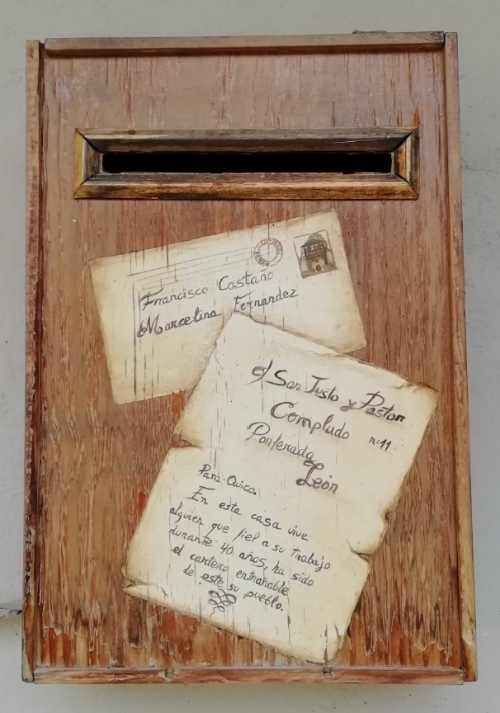 Francisco Castaño
Marcelina Fernandez
c/ San Justo y Pastor
Compludo nº11
Ponferrada
León
Para Quico.
En esta casa vive
alguien que fiel a su trabajo
durante 40 años, ha sido
el cartero entrañable
de este su pueblo.